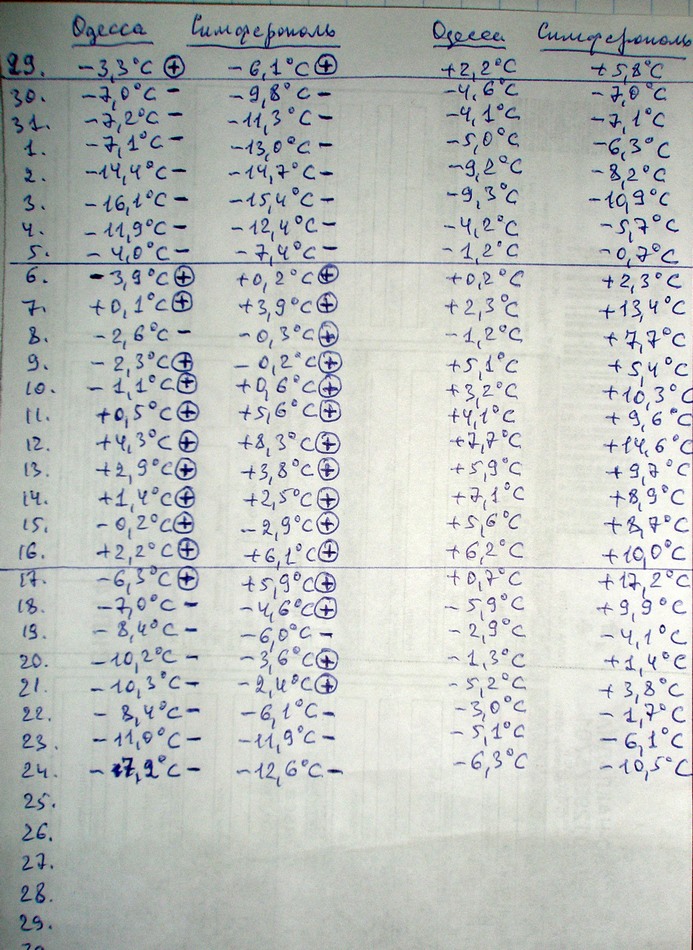 Одесса Симферополь Одесса Симферополь
29. -3,3°C ⊕ -6,1°C ⊕ +2,2°C +5,8°C
30. -7,0°C - -9,8°C - -4,6°C -7,0°C
31. -7,2°C - -11,3°C - -4,1°C -7,1°C
1. -7,1°C - -13,0°C - -5,0°C -6,3°C
2. -14,4°C - -14,7°C - -9,2°C -8,2°C
3. -16,1°C - -15,4°C - -9,3°C -10,9°C
4. -11,9°C - -12,4°C - -4,2°C -5,7°C
5. -4,0°C - -7,4°C - -1,2°C -0,7°C
6. -3,9°C ⊕ +0,2°C ⊕ +0,2°C +2,3°C
7. +0,1°C ⊕ +3,9°C ⊕ +2,3°C +13,4°C
8. -2,6°C - -0,3°C ⊕ -1,2°C +7,7°C
9. -2,3°C ⊕ -0,2°C ⊕ +5,1°C +5,4°C
10. -1,1°C ⊕ +0,6°C ⊕ +3,2°C +10,3°C
11. +0,5°C ⊕ +5,6°C ⊕ +4,1°C +9,6°C
12. +4,3°C ⊕ +8,3°C ⊕ +7,7°C +14,6°C
13. +2,9°C ⊕ +3,8°C ⊕ +5,9°C +9,7°C
14. +1,4°C ⊕ +2,5°C ⊕ +7,1°C +8,9°C
15. -0,2°C ⊕ -2,9°C ⊕ +5,6°C +8,7°C
16. +2,2°C ⊕ +6,1°C ⊕ +6,2°C +10,0°C
17. -6,3°C ⊕ +5,9°C ⊕ +0,7°C +17,2°C
18. -7,0°C - -4,6°C ⊕ -5,9°C +9,9°C
19. -8,4°C - -6,0°C - -2,9°C -4,1°C
20. -10,2°C - -3,6°C ⊕ -1,3°C +1,4°C
21. -10,3°C - -2,4°C ⊕ -5,2°C +3,8°C
22. -8,4°C - -6,1°C - -3,0°C -1,7°C
23. -11,0°C - -11,9°C - -5,1°C -6,1°C
24. -12,6°C - -6,3°C -10,5°C
25.
26.
27.
28.
29.